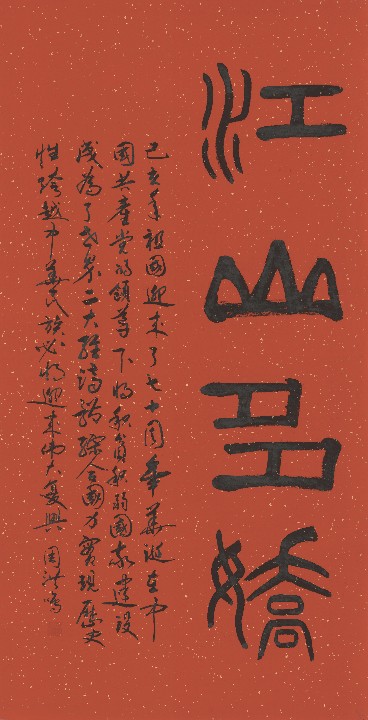 江山多嬌
己亥年祖國迎来了七十周年華誕在中
國共產党的領導下将积貧积弱國家建设
成為了世界二大經濟體綜合國力實現歷史
性跨越中華民族必将迎来伟大复興